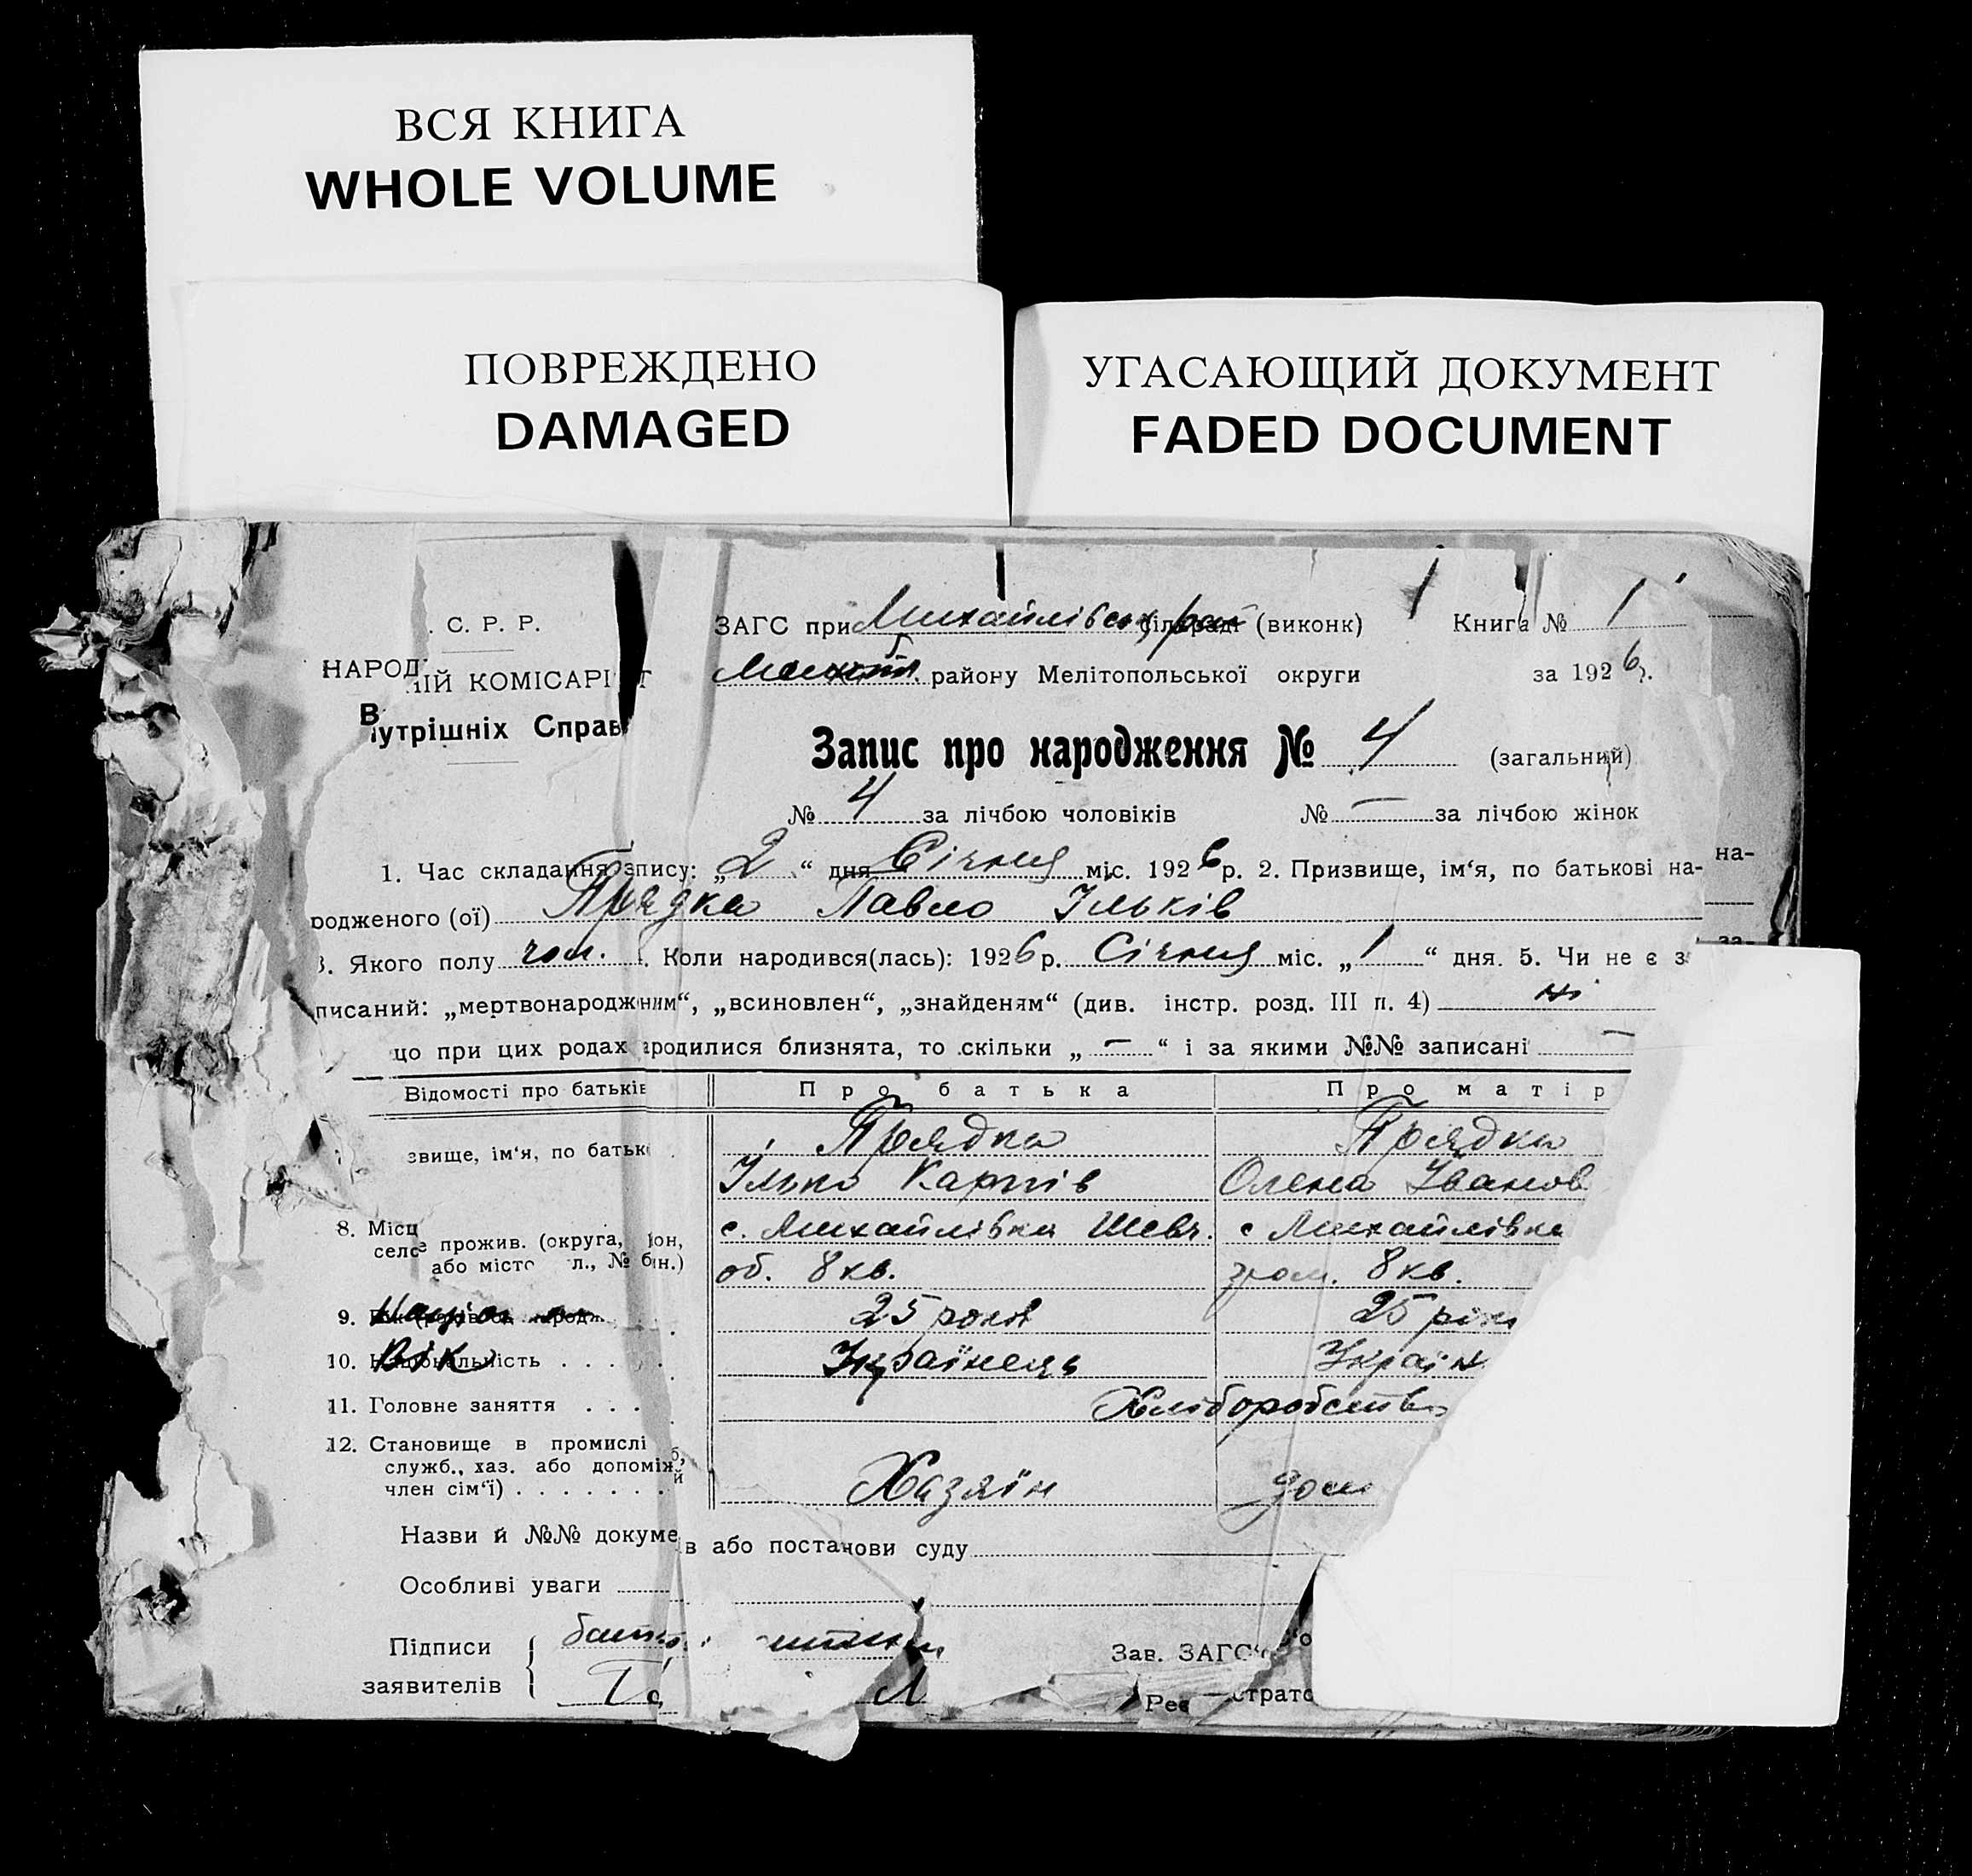 ВСЯ КНИГА
WHOLE VOLUME
ПОВРЕЖДЕНО
DAMAGED
УГАСАЮЩИЙ ДОКУМЕНТ
FADED DOCUMENT
С. Р. Р.
ЗАГС при Михайлівськ (виконк) Книга № 1
НАРОД ІЙ КОМІСАРІ Т
району Мелітопольської округи за 1926р.
В утрішніх Справ
Запис про народження № 4 (загальний)
№ 4 за лічбою чоловіків № — за лічбою жінок
1. Час складання запису: „2“ дня Січня міс. 1926р. 2. Призвище, ім‘я, по батькові на-
родженого (ої) Прядка Павло Ільків
3. Якого полу чол. Коли народився(лась): 1926р. Січня міс. „1“ дня. 5. Чи не є з
писаний: „мертвонародженим“, „всиновлен“, „знайденям“ (див. інстр. розд. III п. 4) ні
цо при цих родах народилися близнята, то скільки „—“ і за якими №№ записані —
Відомості про батьків Про батька Про матір
звище, ім‘я, по батьк Прядка Прядка
Ілько Карпів Олена Іванов
8. Місц е прожив. (округа, йон, с. Михайлівка Шевч. с Михайлівка
село або місто л., № бн.) об. 8 кв. гром. 8 кв.
9. 25 років 25 рок
10. Національність Вік Українець Україн
11. Головне заняття Хліборобство
12. Становище в промислі
служб., хаз. або допоміж
член сім‘ї) Хазяїн дом
Назви й №№ докуме в або постанови суду
Особливі уваги
Підписи
заявителів
Зав. ЗАГС‘
Реєстрато